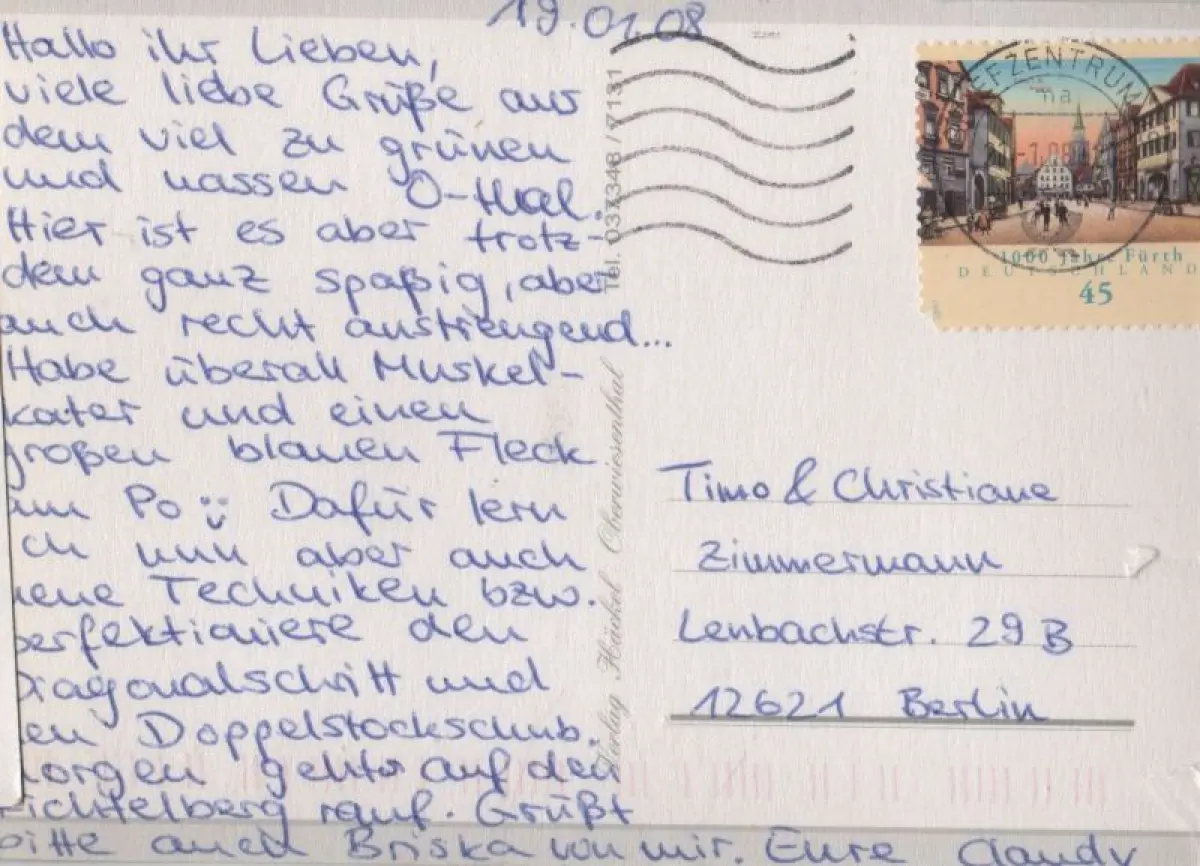 19.01.08
Hallo ihr Lieben,
viele liebe Grüße aus
dem viel zu grünen
und nassen O-thal.
Hier ist es aber trotz-
dem ganz spaßig, aber
auch recht anstrengend...
Habe überall Muskel-
kater und einen
großen blauen Fleck
am Po Dafür lern
ich nun aber auch
neue Techniken bzw.
perfektioniere den
Diagonalschritt und
den Doppelstockschub.
Morgen gehts auf den
Fichtelberg rauf. Grüßt
bitte auch Briska von mir. Eure Claudy
Tel. 037348 / 7131
Verlag Häckel Oberwiesenthal
EFZENTRUM
1000 Jahre Fürth
DEUTSCHLAND
45
Timo & Christiane
Zimmermann
Lenbachstr. 29 B
12621 Berlin